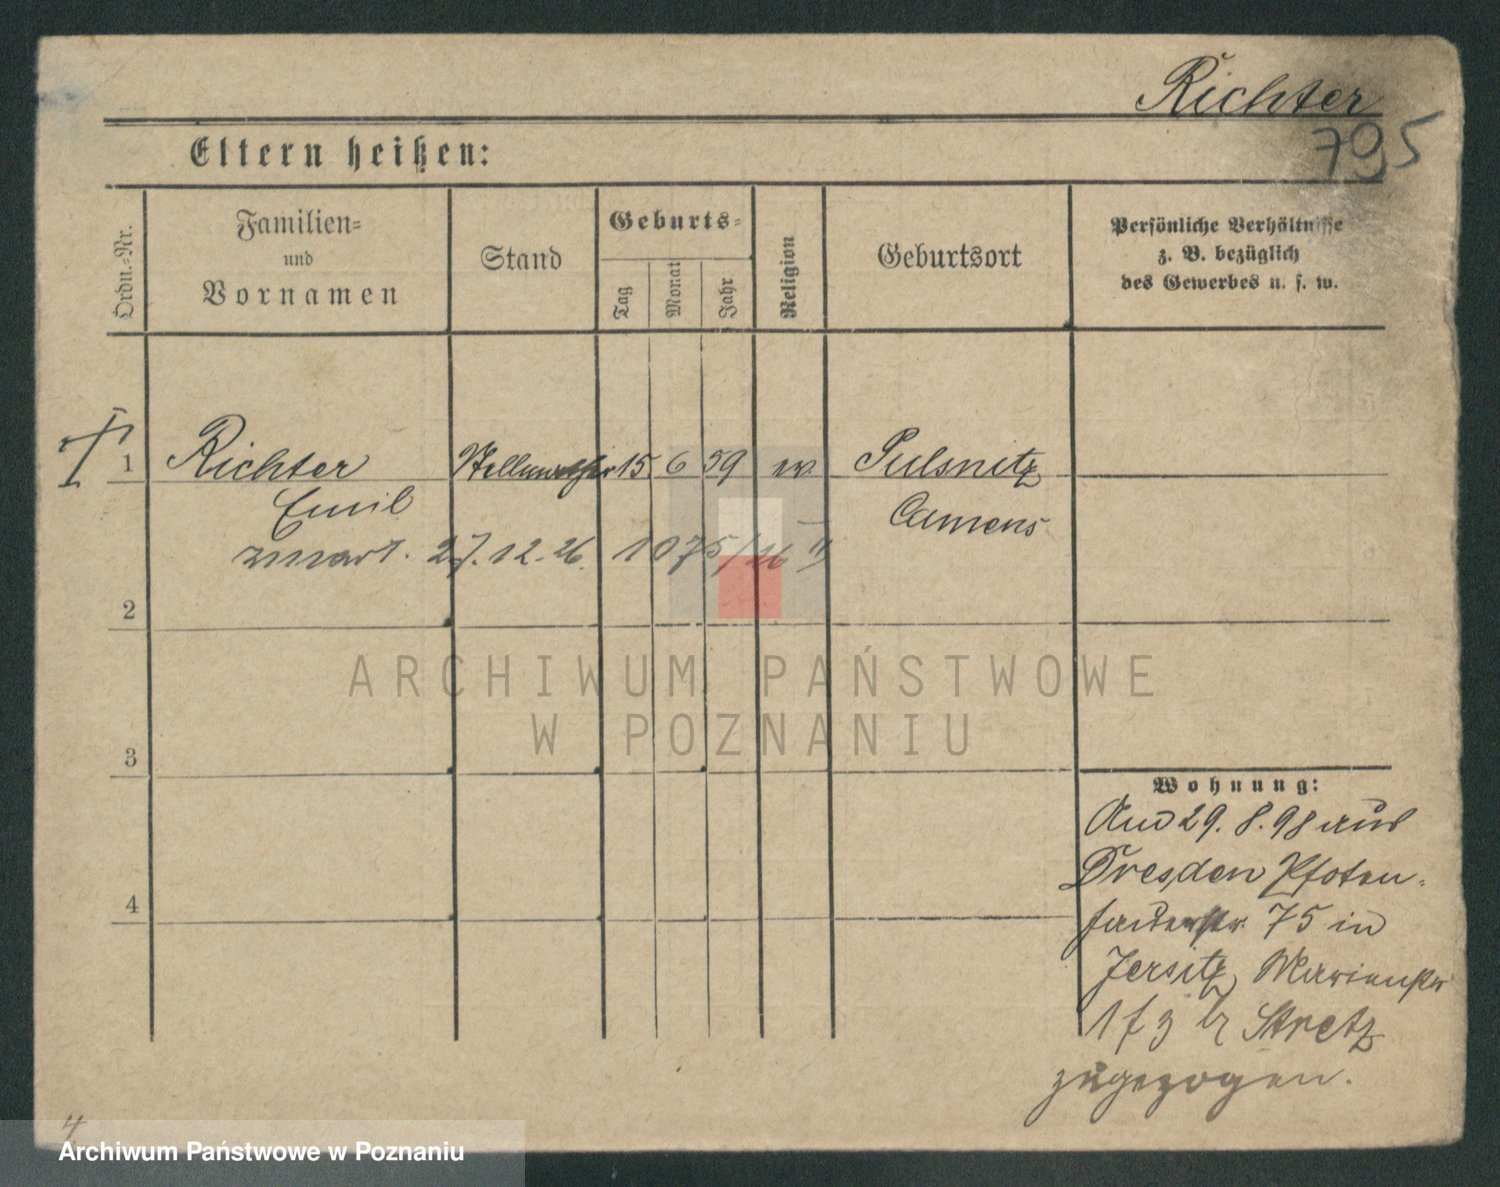 Richter
795
Eltern heißen:
Ordn.-Nr.
Familien-
und
Vornamen
Stand
Geburts-
Tag
Monat
Jahr
Religion
Geburtsort
Persönliche Verhältnisse
z. B. bezüglich
des Gewerbes u. s. w.
1 Richter 15 6 59 ev Pulsnitz
Emil Camens
zmarł. 27.12.26 1075/26 II
2
3
4
Wohnung:
Am 29. 8. 98 aus
Dresden Pfoten-
hauerstr 75 in
Jersitz Marienstr
1 f 3 Stretz
zugezogen.
4
ARCHIWUM PAŃSTWOWE
W POZNANIU
Archiwum Państwowe w Poznaniu